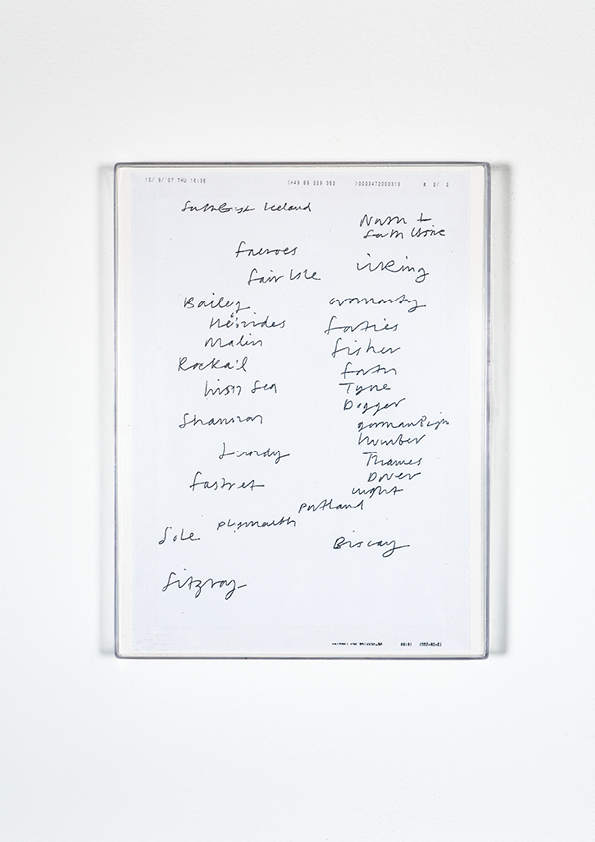 13/ 9/'07 THU 16:36
SouthEast Iceland
North +
South Utsire
Faeroes
Viking
Fair Isle
Bailey
Cromarty
Hebrides
Forties
Malin
Fisher
Rockall
Forth
Irish Sea
Tyne
Dogger
Shannon
German Bight
Humber
Lundy
Thames
Dover
Fastnet
Wight
Portland
Plymouth
Sole
Biscay
Fitzroy